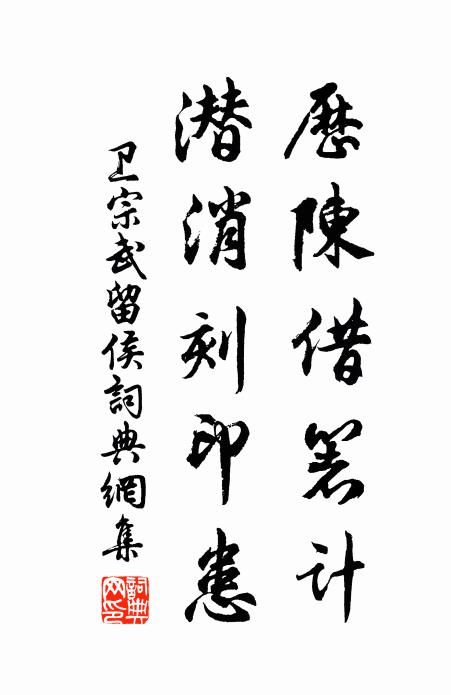 歷陳借箸计
潜消刻印患
卫宗武留侯詞典網集
詞典網印